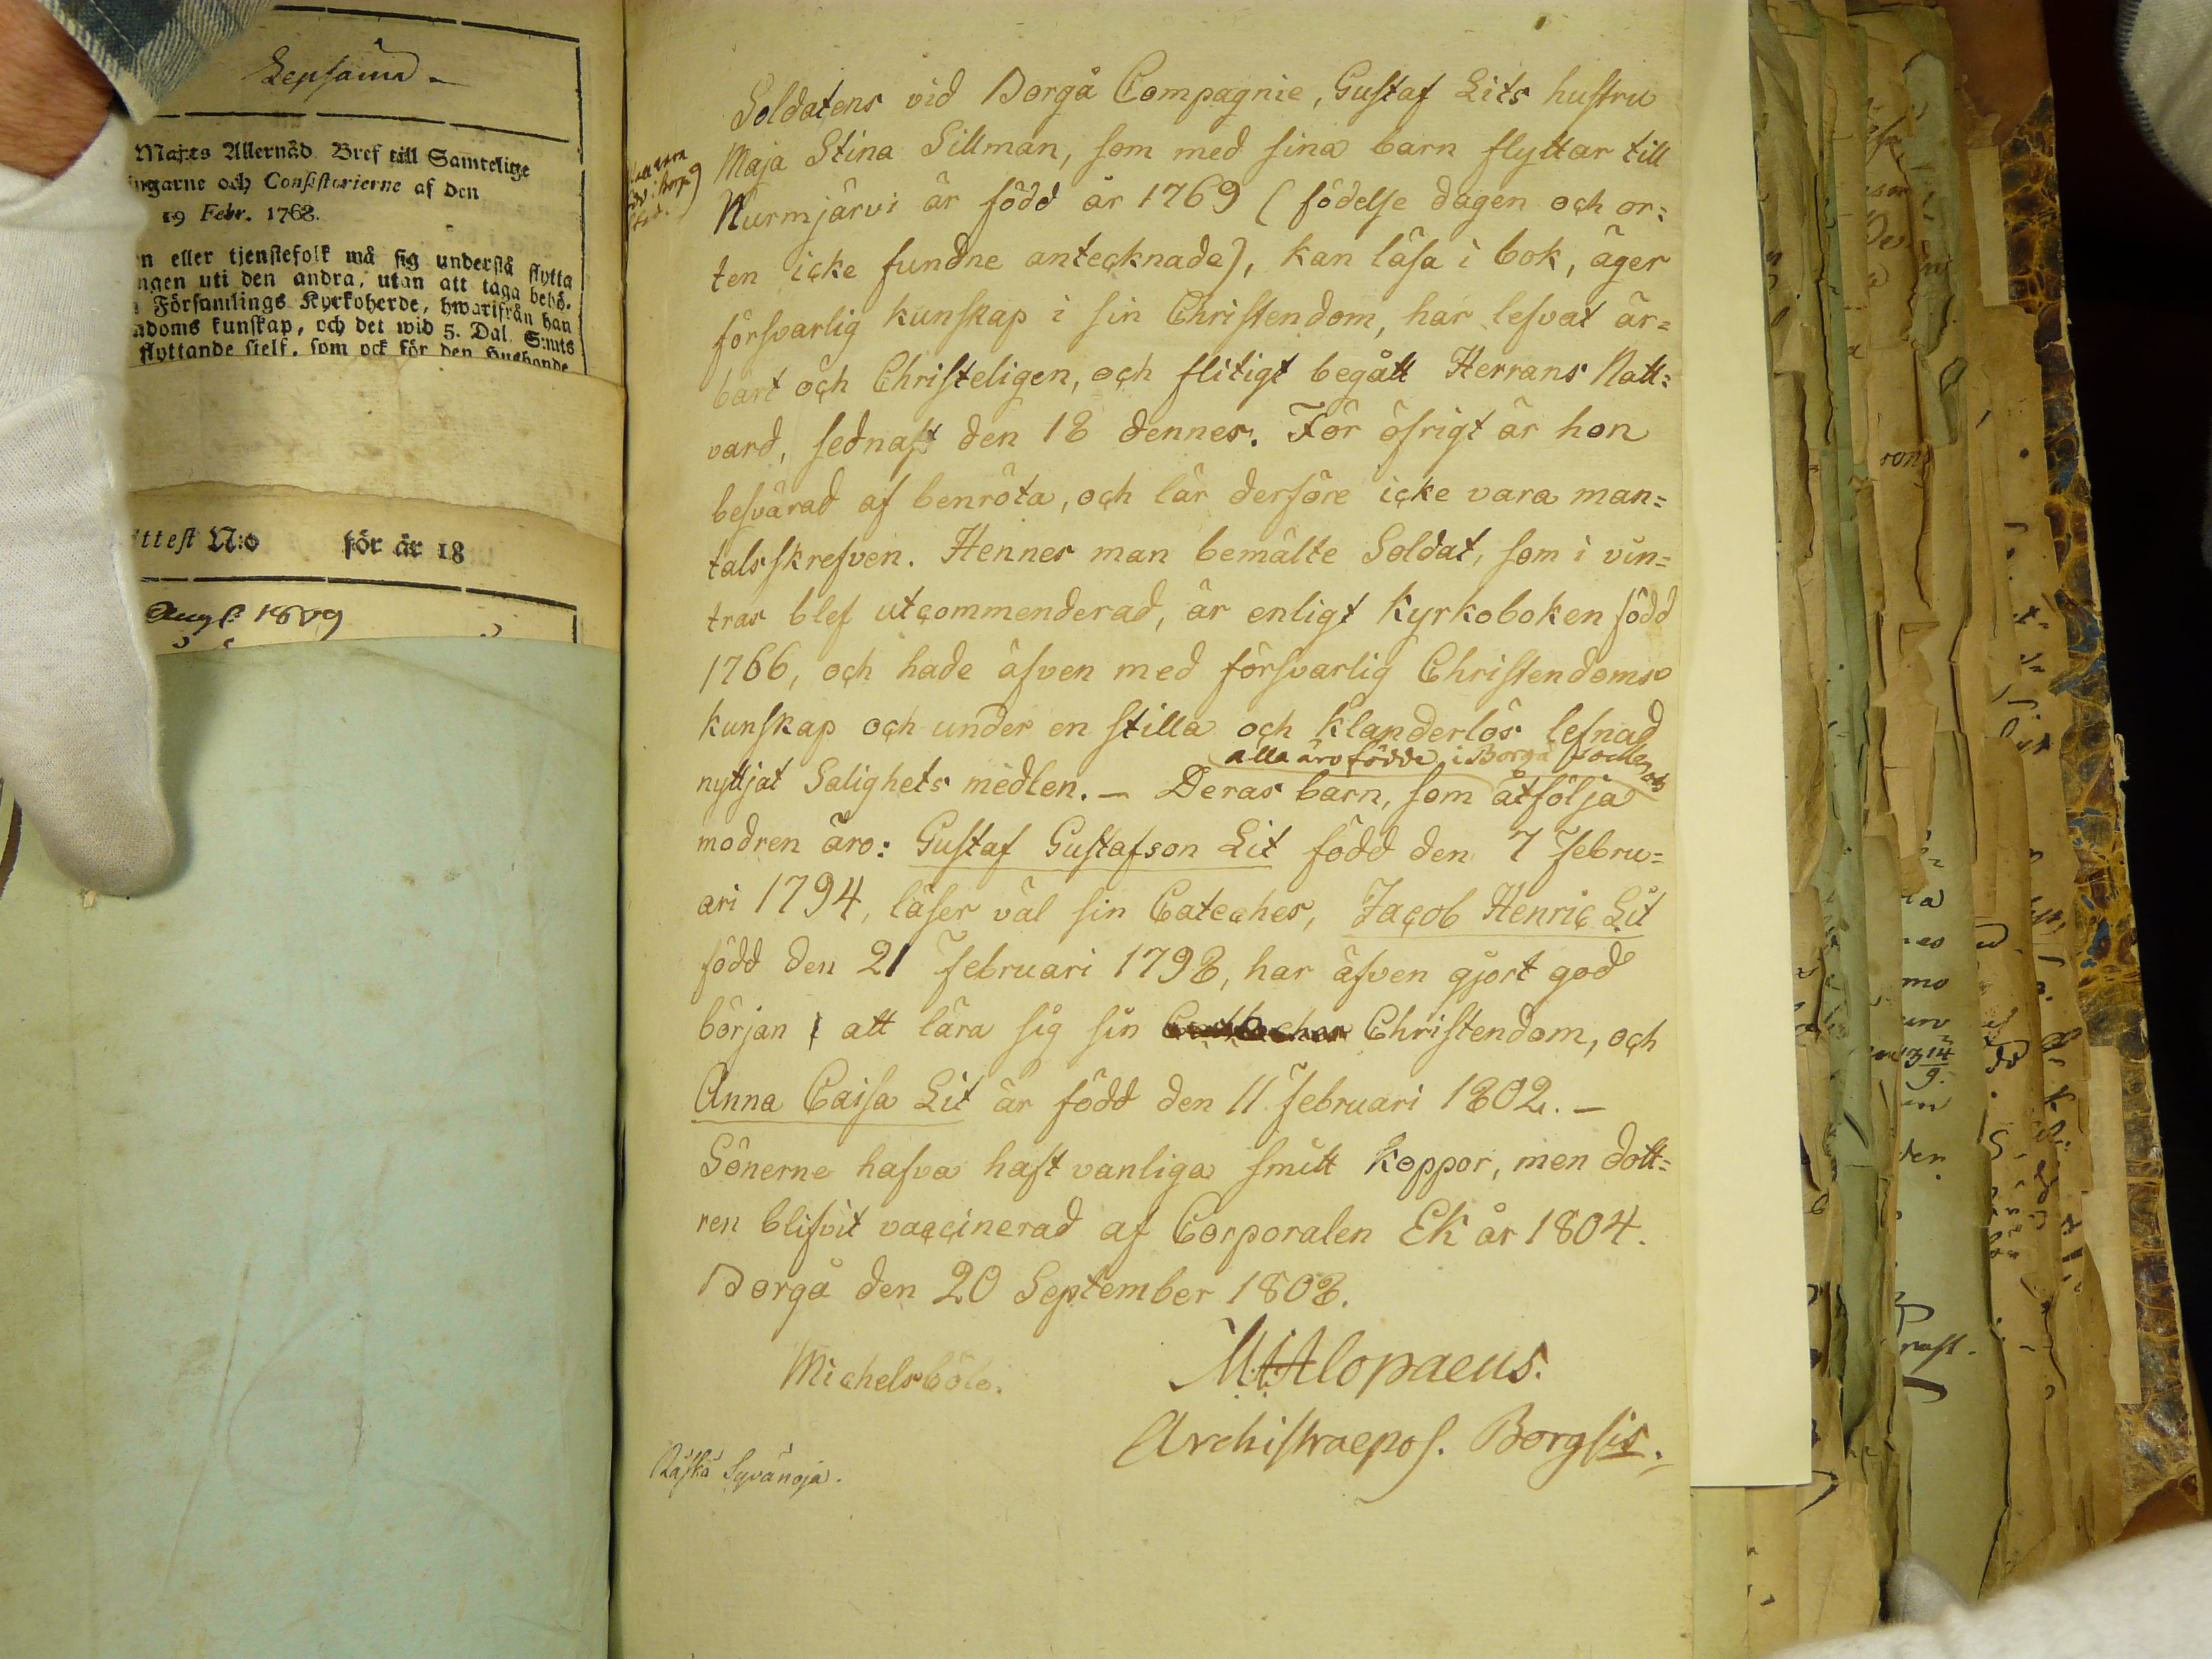 Lepsämä
Maj:ts Allernåd. Bref till Samtelige
ingarne och Consistorierne af den
19 Febr. 1768.
n eller tjenstefolk må sig understå flytta
ngen uti den andra, utan att taga behö-
Församlings Kyrkoherde, hwarifrån han
ndoms kunskap, och det wid 5. Dal. S:mts
flyttande sielf, som ock för den Husbonde
ttest N:o för år 18
Aug. 1809
Soldatens vid Borgå Compagnie, Gustaf Lits hustru
Maja Stina Sillman, som med sina barn flyttar till
Nurmjärvi är född år 1769 (födelse dagen och or-
ten icke fundne antecknade), kan läsa i bok, äger
försvarlig kunskap i sin Christendom, har lefvat är-
bart och Christeligen, och flitigt begått Herrans Natt-
vard, sednast den 18 dennes. För öfrigt är hon
besvärad af benröta, och lär derföre icke vara man-
talsskrefven. Hennes man bemälte Soldat, som i vin-
tras blef utcommenderad, är enligt Kyrkoboken född
1766, och hade äfven med försvarlig Christendoms
kunskap och under en stilla och klanderlös lefnad
alla äro födde i Borgå Sockn och
nyttjat Salighets medlen. – Deras barn, som åtfölja
modren äro: Gustaf Gustafson Lit född den 7 Febru-
ari 1794, läser väl sin Cateches, Jacob Henric Lit
född den 21 Februari 1798, har äfven gjort god
början att lära sig sin Christendom, och
Anna Caisa Lit är född den 11 Februari 1802. –
Sönerne hafva haft vanliga smitt koppor, men dott-
ren blifvit vaccinerad af Corporalen Ek år 1804.
Borgå den 20 September 1808.
Michelsböle.
M Alopaeus.
Archi Praepos. Borgsis.
Räfkä Syvänoja.